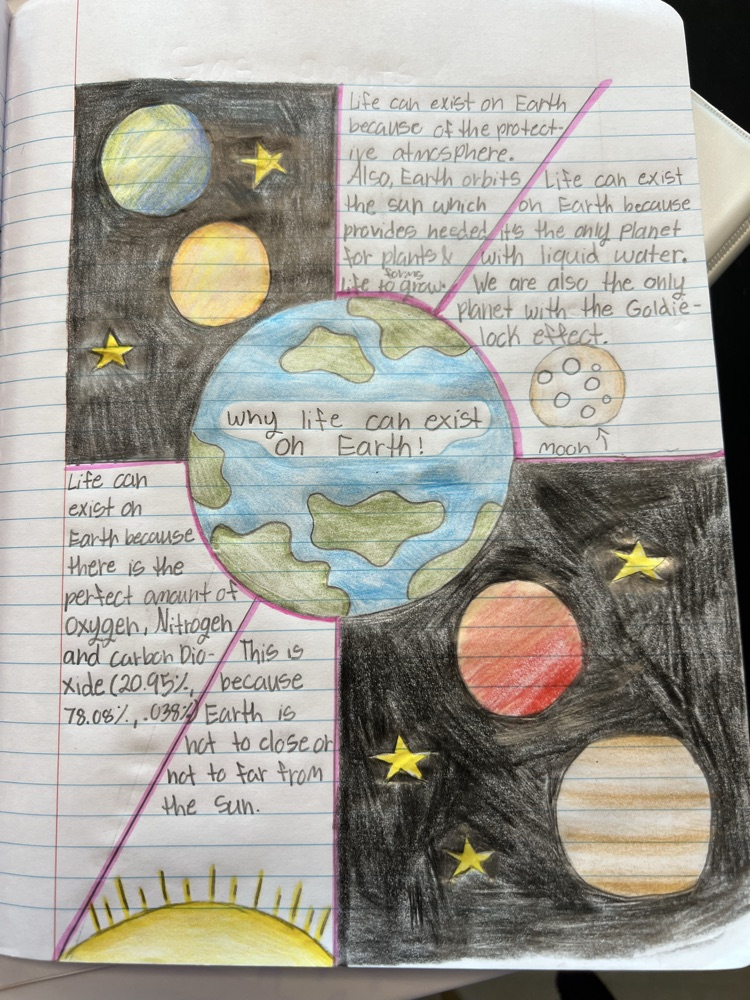 Life can exist on Earth
because of the protect-
ive atmosphere.
Also, Earth orbits
the sun which
provides needed
for plants &
life forms to grow.
Life can exist
on Earth because
it's the only planet
with liquid water.
We are also the only
planet with the Goldie-
lock effect.
moon
why life can exist
on Earth!
Life can
exist on
Earth because
there is the
perfect amount of
Oxygen, Nitrogen
and carbon Dio-
xide (20.95%,
78.08%, .038%)
This is
because
Earth is
not to close or
not to far from
the sun.